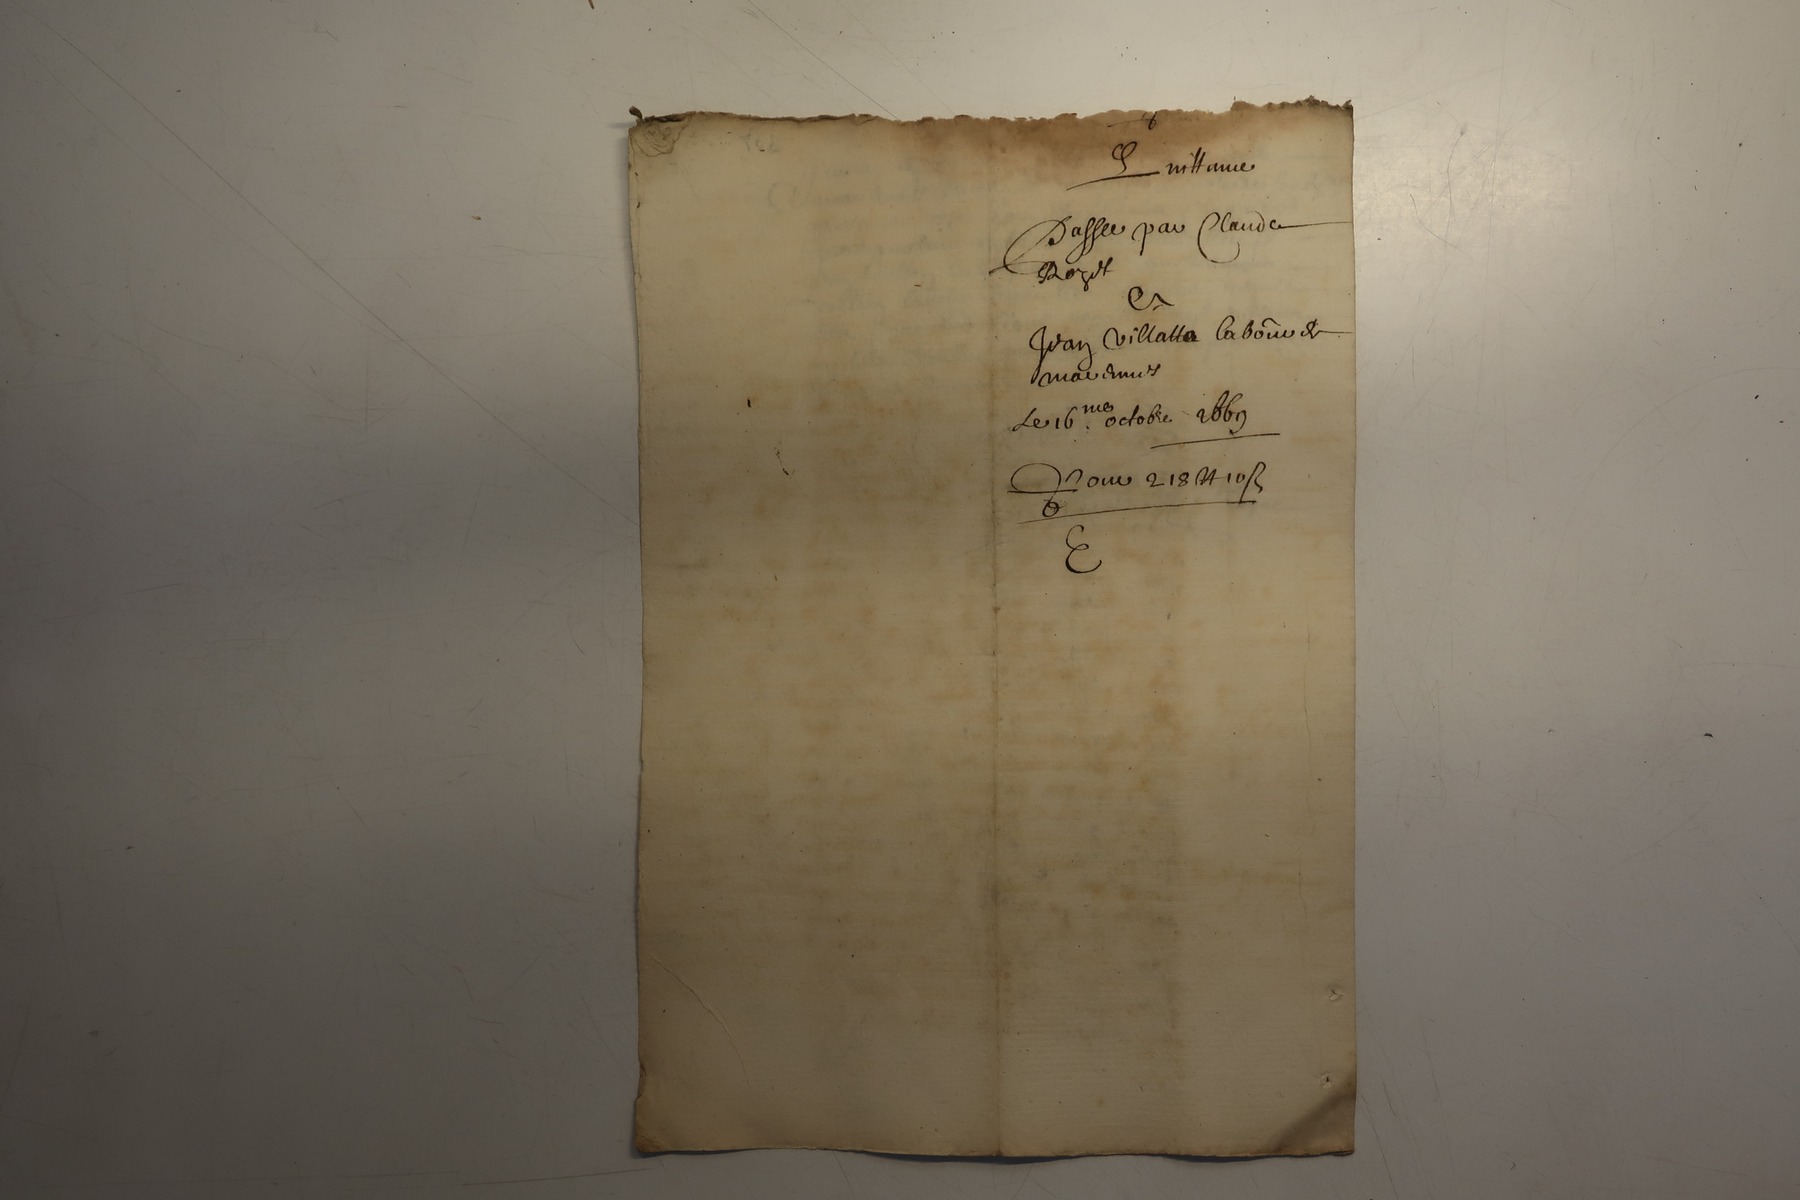 Quittance
Passee par Claude
Rozet
Et
Jean Villatte laboure de
marennes
Le 16me octobre 1669
Pour 218 ₶ 10 s
E